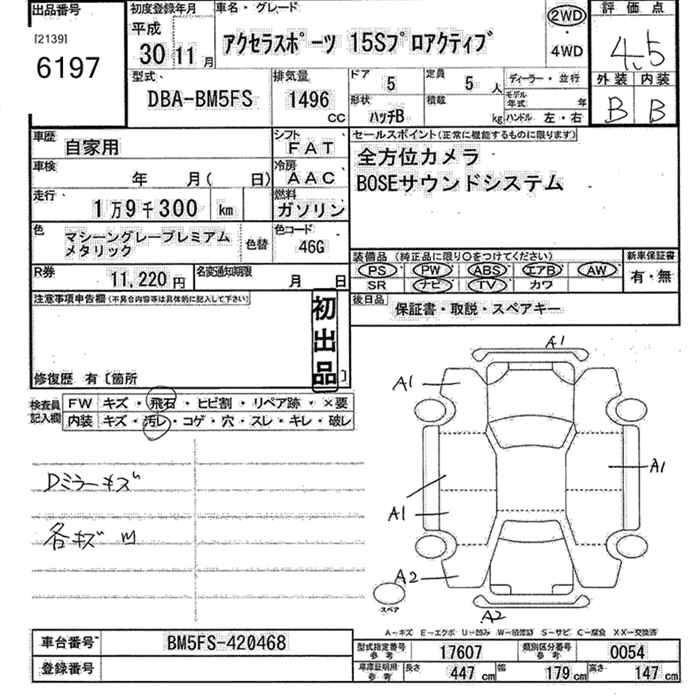 出品番号
[2139]
6197
初度登録年月
平成
30 11月
車名・グレード
アクセラスポーツ 15Sプロアクティブ
2WD
・
4WD
評価点
4.5
外装 内装
B B
型式
DBA-BM5FS
排気量
1496
cc
ドア
5
定員
5人
形状
ハッチB
積載
kg
ディーラー・並行
モデル年式 年
ハンドル 左・右
車歴
自家用
シフト
FAT
車検
年 月( 日)
冷房
AAC
走行
1万9千300 km
燃料
ガソリン
色
マシーングレープレミアム
メタリック
色替
色コード
46G
R券
11,220円
名変通知期限
月 日
セールスポイント(正常に機能するものに限ります)
全方位カメラ
BOSEサウンドシステム
装備品 (純正品に限り○をつけてください)
PS・PW・ABS・エアB・AW・
SR ナビ・TV・カワ
新車保証書
有・無
後日品
保証書・取説・スペアキー
注意事項申告欄(不具合内容等は具体的に記入して下さい)
初出品
修復歴 有〔箇所 〕
検査員記入欄
FW キズ・飛石・ヒビ割・リペア跡・×要
内装 キズ・汚レ・コゲ・穴・スレ・キレ・破レ
Dミラーキズ
各キズ
A1
A1
A1
A1
A2
A2
スペア
A-キズ E-エクボ U-凹ミ W-補修跡 S-サビ C-腐食 XX-交換済
車台番号
BM5FS-420468
登録番号
型式指定番号
参考
17607
類別区分番号
参考
0054
車庫証明用
参考
長さ 447cm 幅 179cm 高さ 147cm